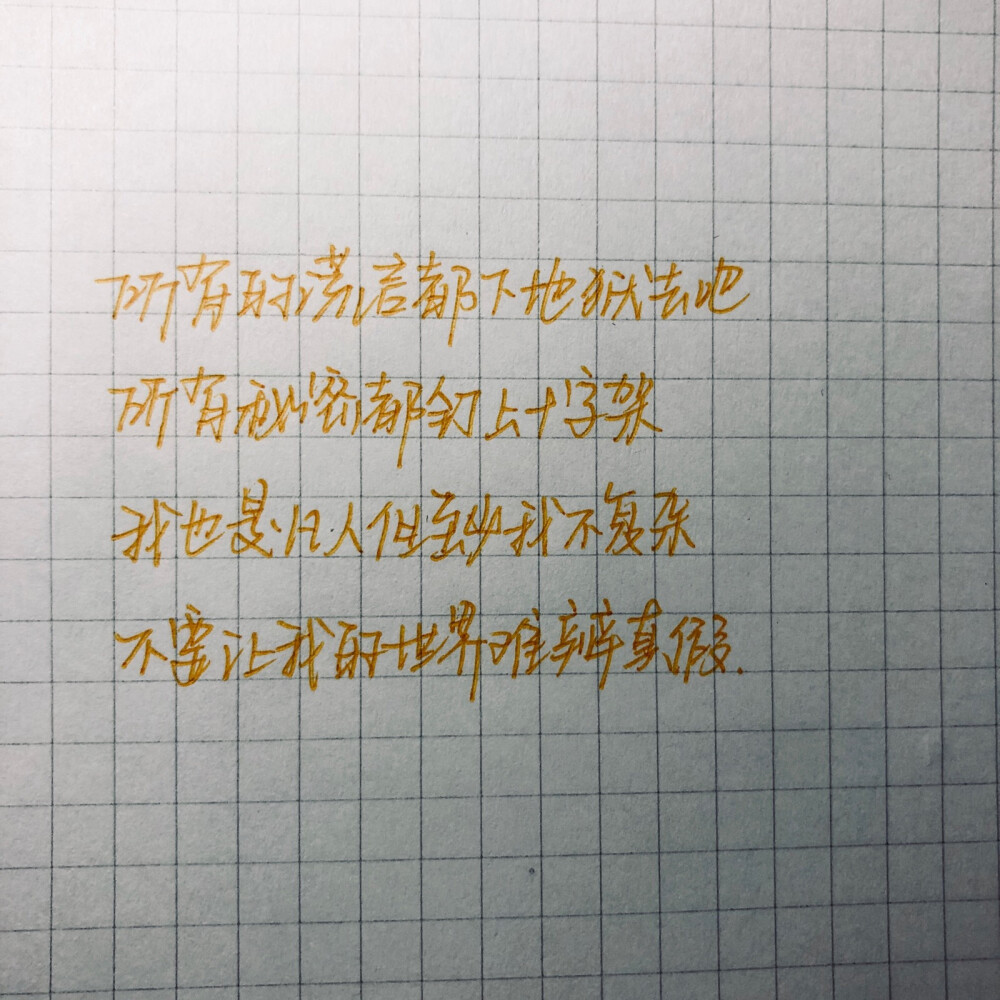 所有的谎言都下地狱去吧
所有秘密都钉上十字架
我也是凡人但至少我不复杂
不要让我的世界难辨真假.